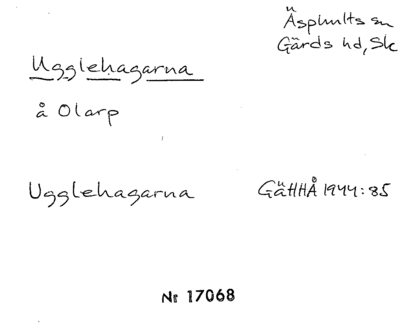 Äsphults sn
Gärds hd, Sk
Ugglehagarna
å Olarp
Ugglehagarna GäHHÅ 1944:85
Nr 17068